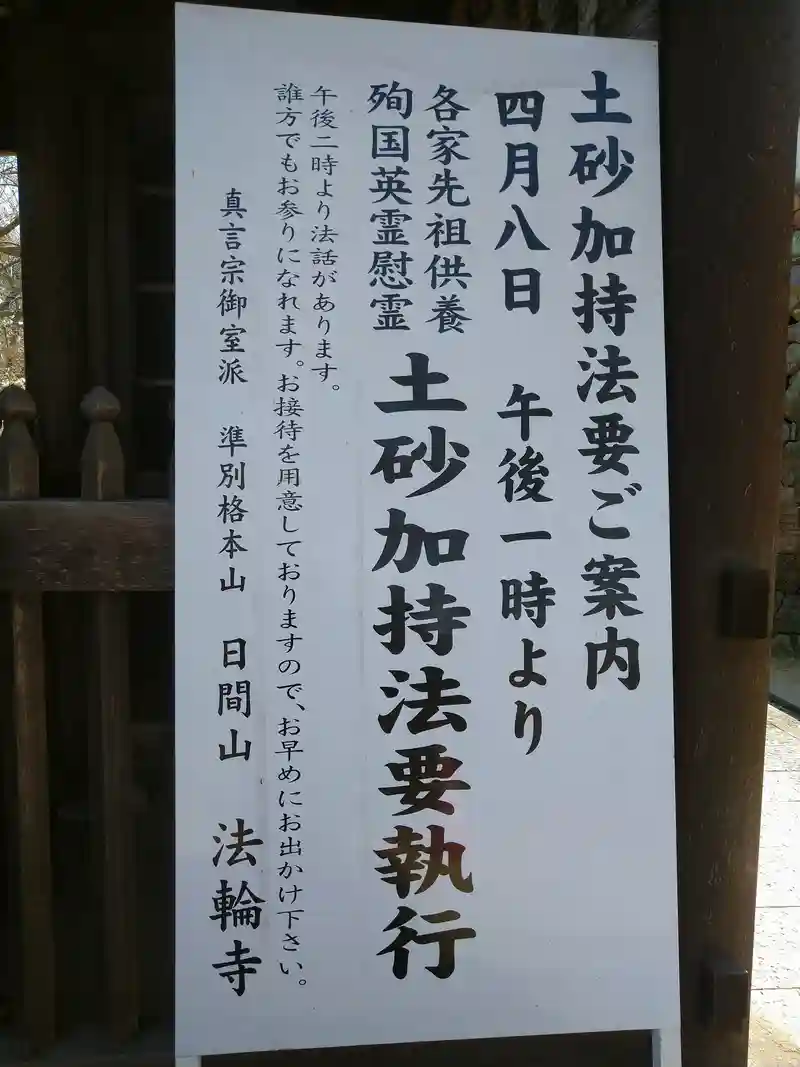 土砂加持法要ご案内
四月八日　午後一時より
各家先祖供養
殉国英霊慰霊
土砂加持法要執行
午後二時より法話があります。
誰方でもお参りになれます。お接待を用意しておりますので、お早めにお出かけ下さい。
真言宗御室派　準別格本山　日間山　法輪寺